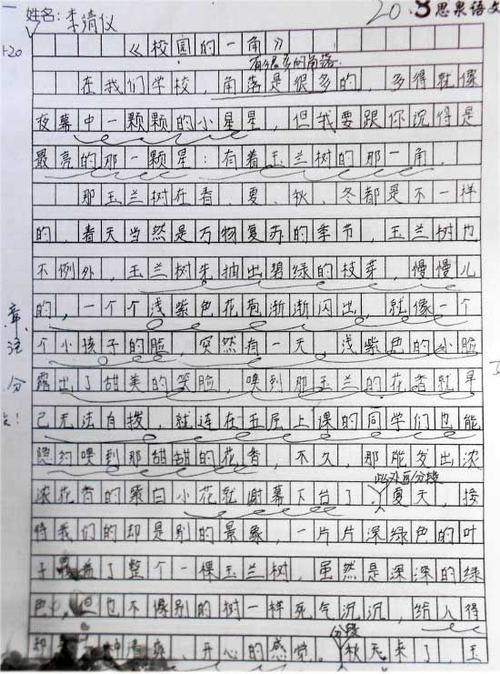 姓名：李靖仪
20.8 思泉语文
+20
《校园的一角》
有很多的角落
在我们学校，角落是很多的，多得就像
夜幕中一颗颗的小星星，但我要跟你沉得是
最亮的那一颗星：有着玉兰树的那一角。
那玉兰树在春、夏、秋、冬都是不一样
的，春天当然是万物复苏的季节，玉兰树也
不例外，玉兰树先抽出碧绿的枝芽，慢慢儿
的，一个个浅紫色花苞渐渐闪出，就像一个
个小孩子的脸，突然有一天，浅紫色的小脸
露出了甜美的笑脸，嗅到那玉兰的花香就早
已无法自拔，就连在五层上课的同学们也能
隐约嗅到那甜甜的花香，不久，那能发出浓
此处要分段
浓花香的紫白小花就谢幕下台了，夏天，接
待我们的却是别的景象，一片片深绿色的叶
子 了整个一棵玉兰树，虽然是深深的绿
色，但也不像别的树一样死气沉沉，给人得
分段
却 清爽、开心的感觉。秋天来了，玉
章
注
分